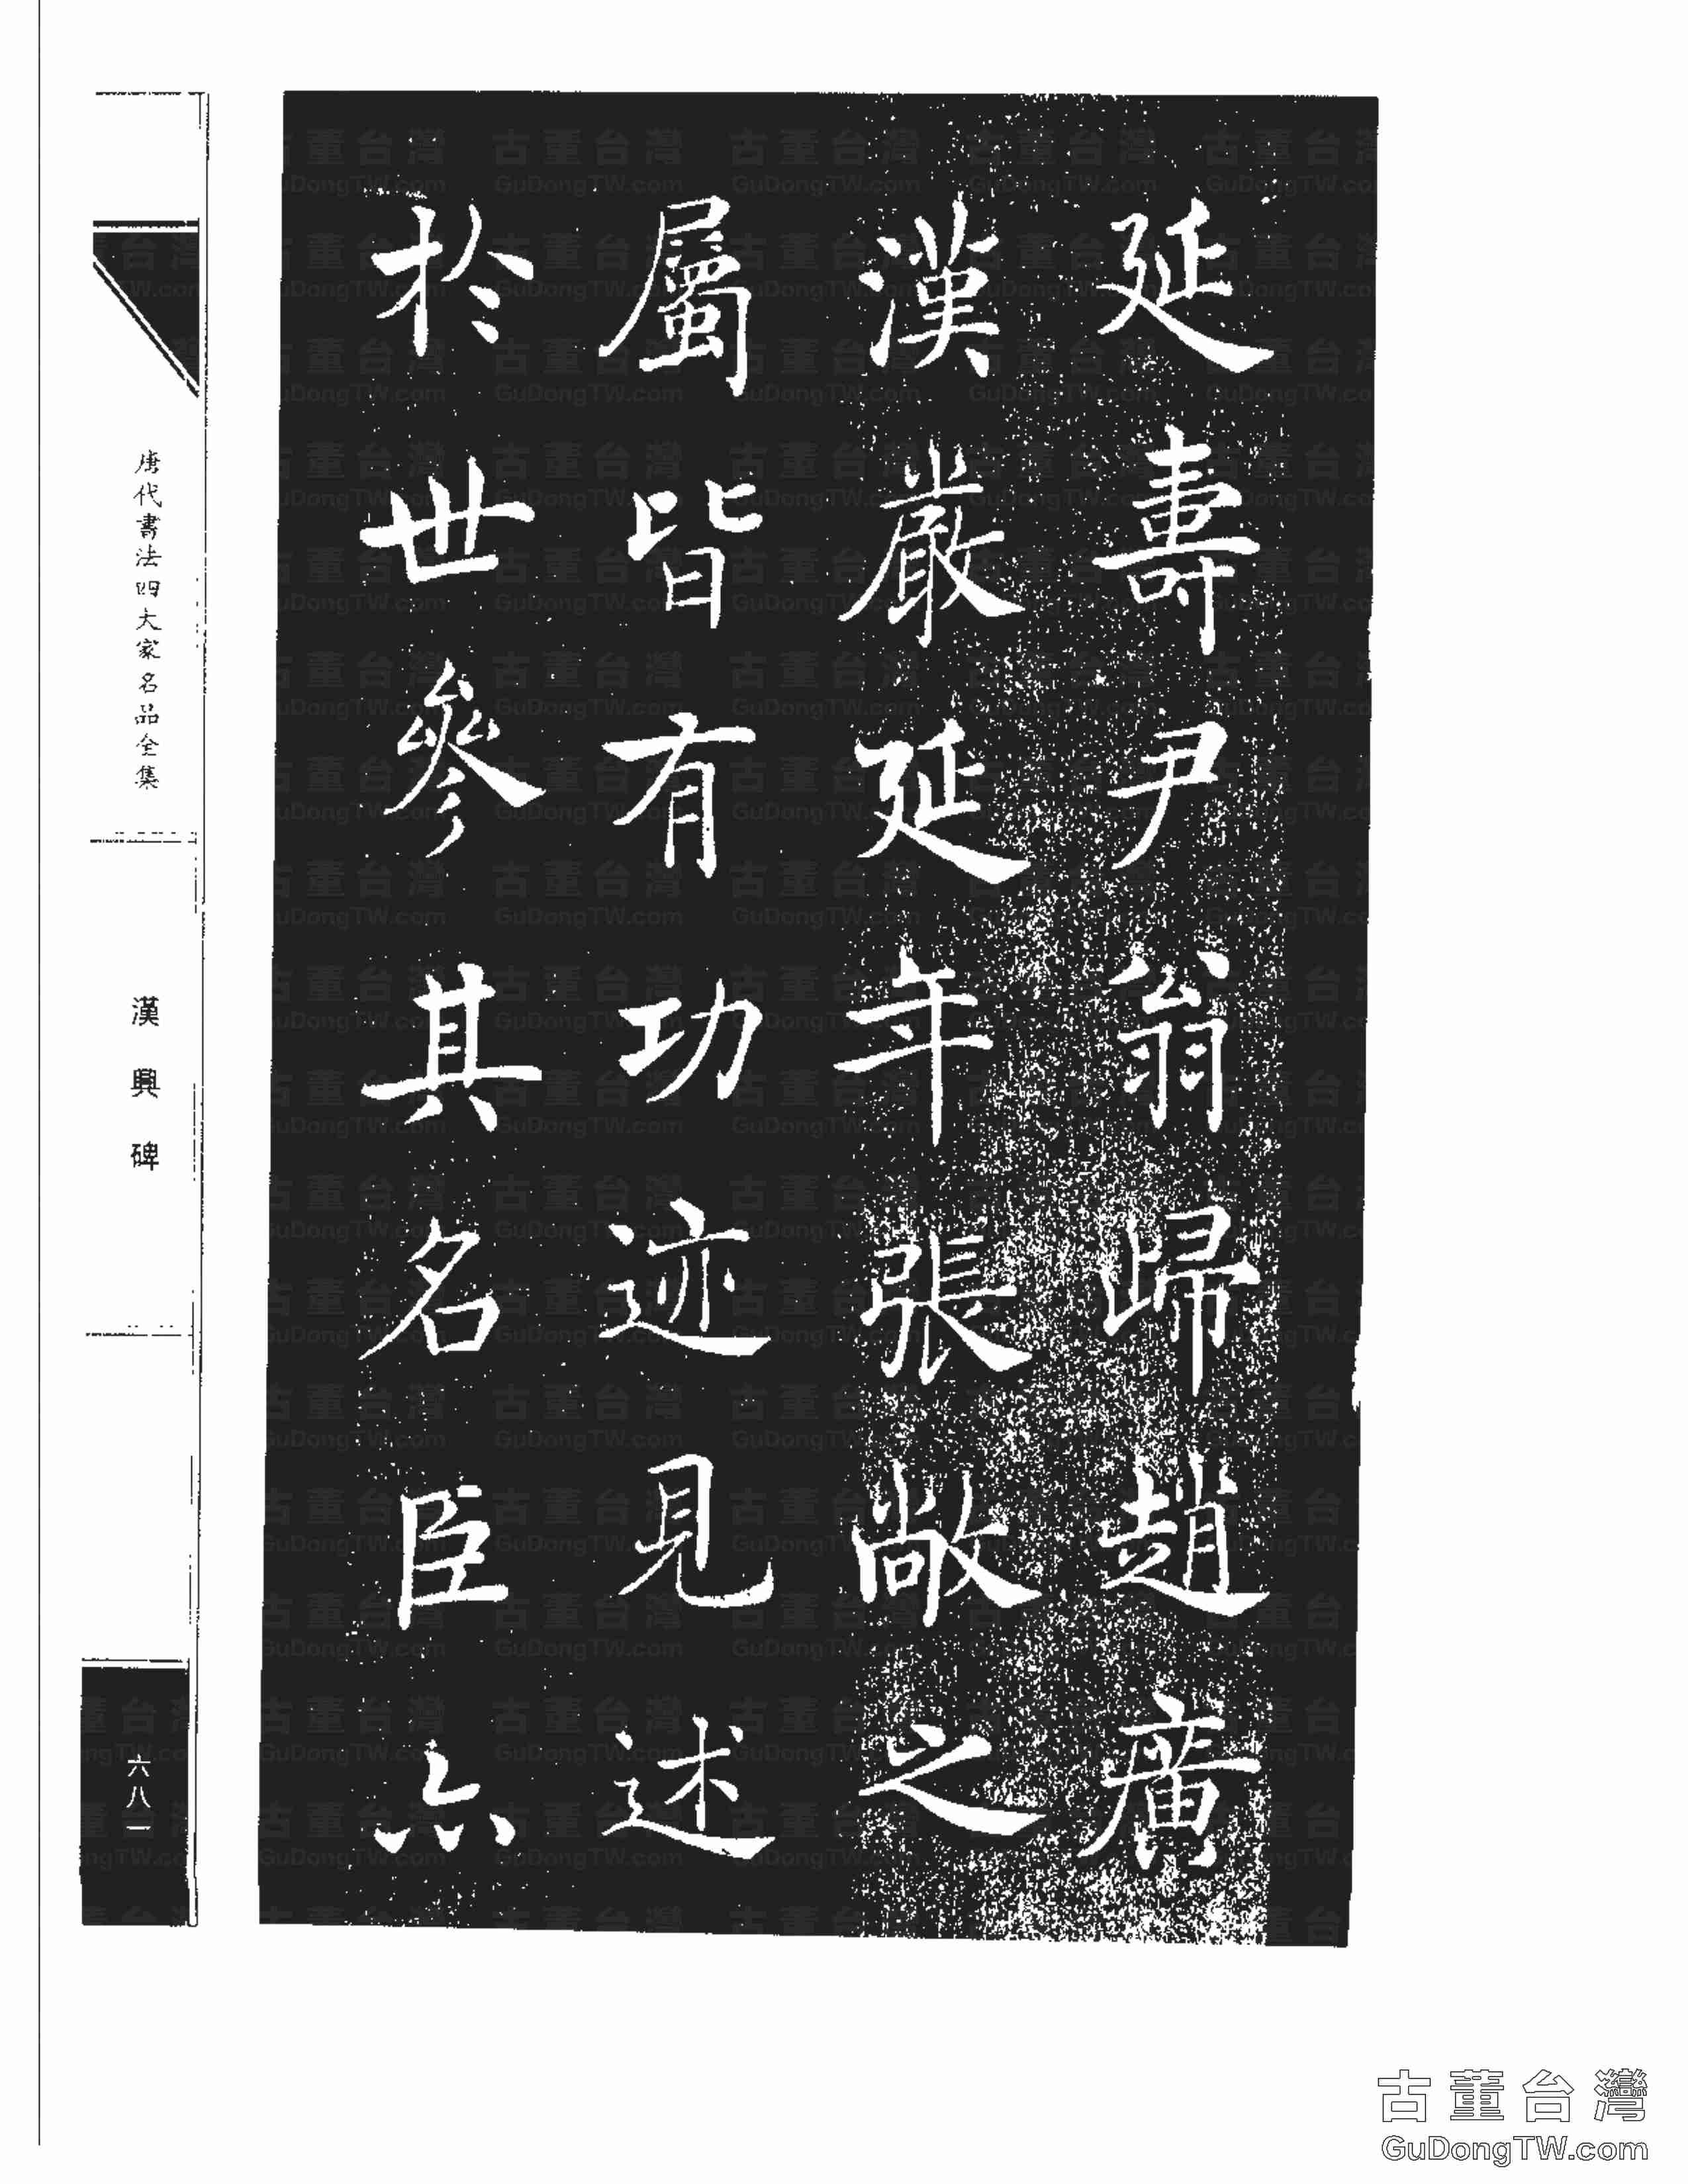 延壽尹翁歸趙廣
漢嚴延年張敞之
屬皆有功迹見述
於世參其名臣亦
唐代書法四大家名品全集
漢興碑
六八一
古董台灣
GuDongTW.com